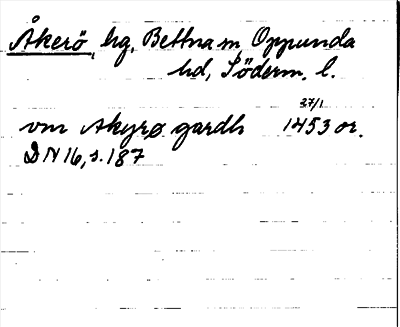 Åkerö, hg, Bettna sn, Oppunda
hd, Söderm. l.
27/1
vm Akyrø gardh 1453 or.
DN 16, s. 187